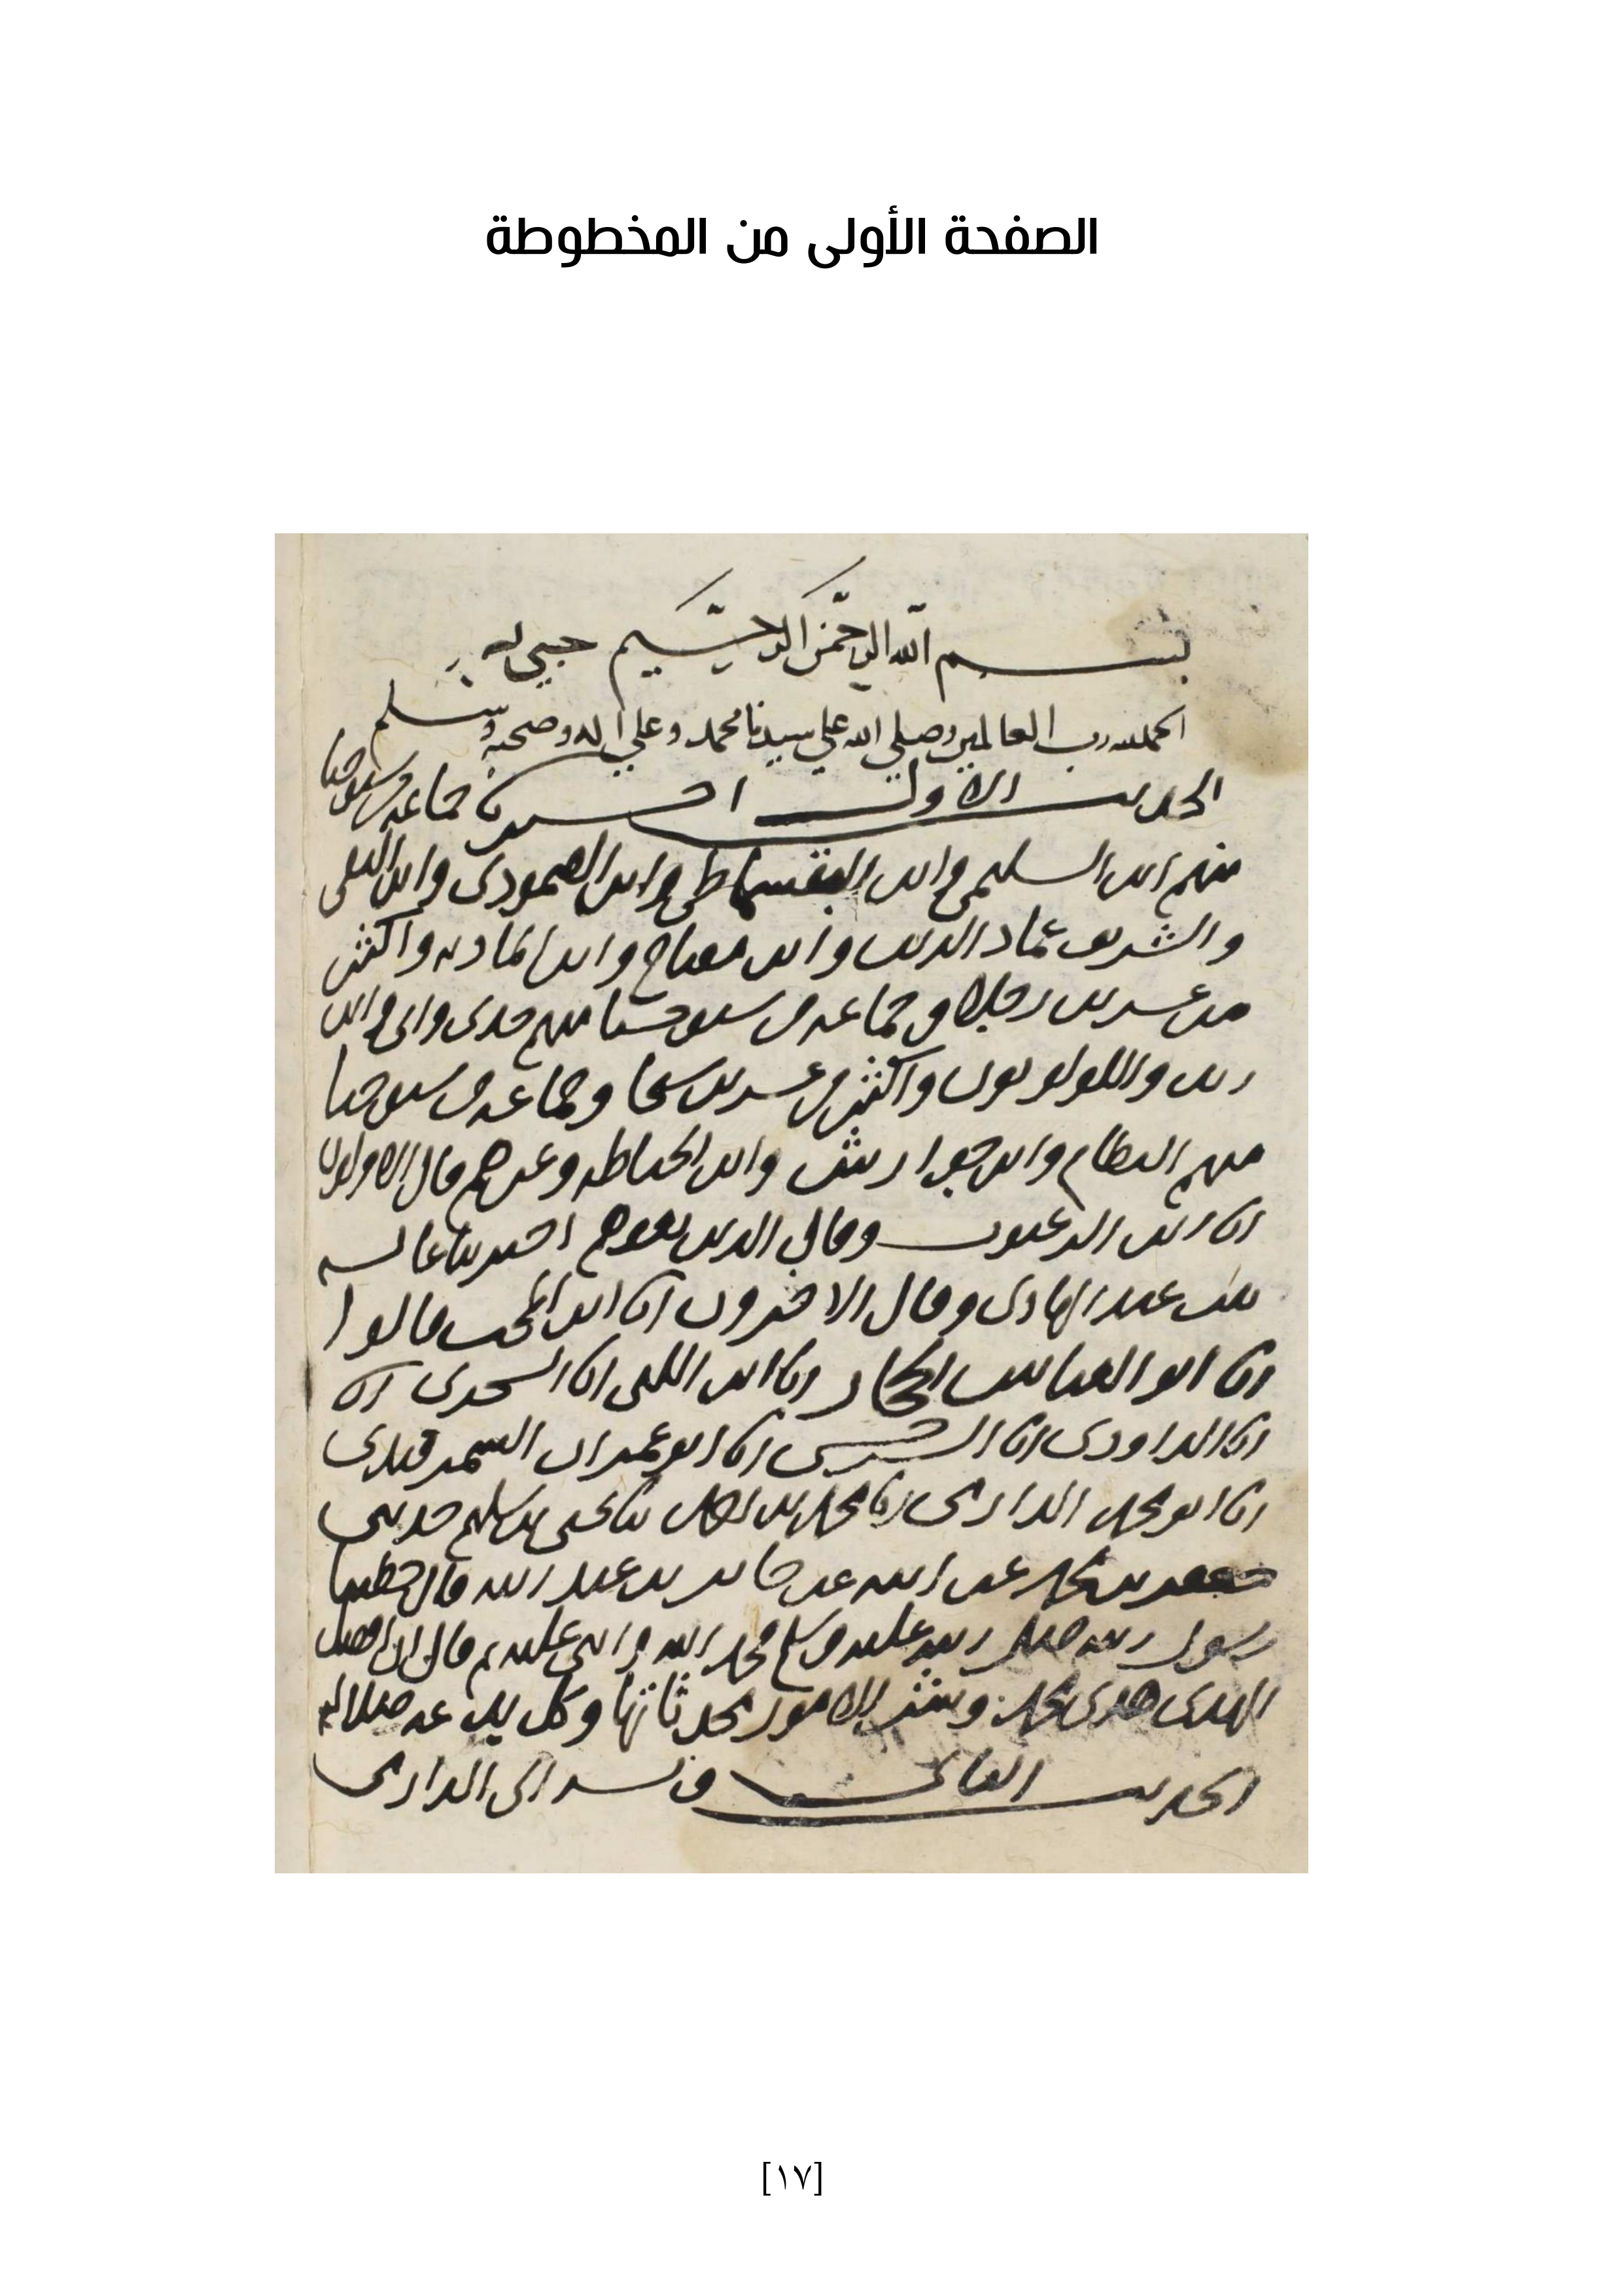 الصفحة الأولى من المخطوطة
بسم الله الرحمن الرحيم
الحمد لله رب العالمين وصلى الله على سيدنا محمد وعلى اله وصحبه وسلم
الحديث الاول اخبرنا جماعة من شيوخنا
منهم ابن السليمي وابن البقسماطي وابن الصمودي وابن
والشريف عماد الدين وابن مفتاح وابن واكثر
من عشرين رجلا وجماعة من شيوخنا منهم جدي وابي وابن
واللولويون واكثر من عشرين شيخا وجماعة من شيوخنا
منهم النظام وابن جوارش وابن الخياطة وغيرهم قال الاولون
انا ابن الزعبوب وقال الذين بعدهم اخبرتنا عائشة
بنت عبد الهادي وقال الاخرون انا ابن المحب قالوا
انا ابو العباس الحجار انا ابن اللتي انا السجزي انا
انا الداودي انا السرخسي انا ابو عمران السمرقندي
انا ابو محمد الدارمي انا محمد بن ثنا يحيى بن سليم حدثني
جعفر بن محمد عن ابيه عن جابر بن عبد الله قال خطبنا
رسول الله صلى الله عليه وسلم فحمد الله واثنى عليه ثم قال ان افضل
الهدي هدي محمد وشر الامور محدثاتها وكل بدعة ضلالة
الحديث الثاني وبه الى الدارمي
[١٧]